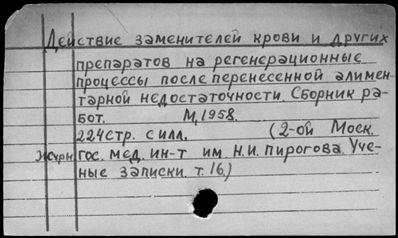 Действие заменителей крови и других
препаратов на регенерационные
процессы после перенесенной алимен-
тарной недостаточности. Сборник ра-
бот. М, 1958.
224стр. с илл. (2-ой Моск.
Журн гос. мед. ин-т им. Н.И. Пирогова. Уче-
ные записки. т. 16.)